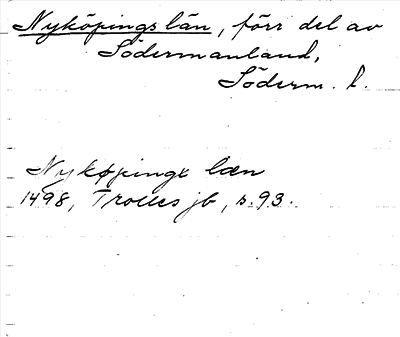 Nyköpings län, förr del av
Södermanland,
Söderm. l.
Nykøpings læn
1498, Trolles jb, s. 93.